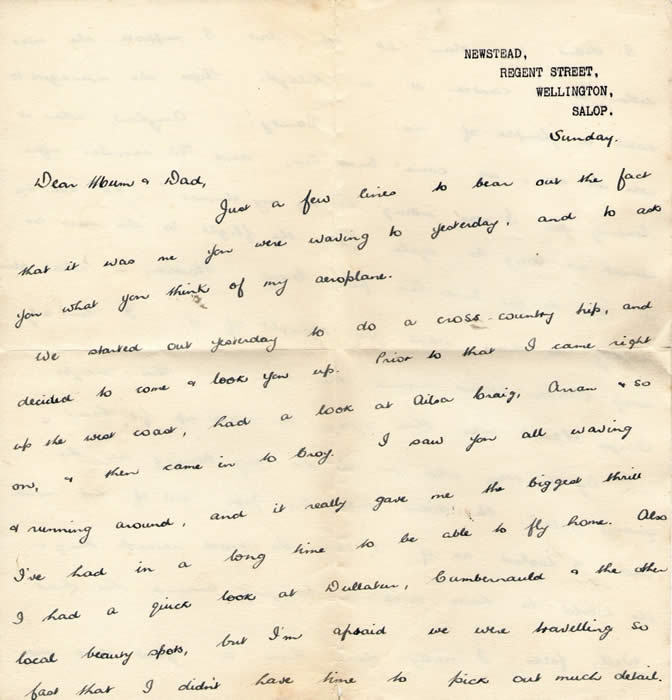 NEWSTEAD,
REGENT STREET,
WELLINGTON,
SALOP.
Sunday.
Dear Mum & Dad,
Just a few lines to bear out the fact
that it was me you were waving to yesterday, and to ask
you what you think of my aeroplane.
We started out yesterday to do a cross-country trip, and
decided to come & look you up. Prior to that I came right
up the west coast, had a look at Ailsa Craig, Arran & so
on, & then came in to Croy. I saw you all waving
& running around, and it really gave me the biggest thrill
I've had in a long time to be able to fly home. Also
I had a quick look at Dullatur, Cumbernauld & the other
local beauty spots, but I'm afraid we were travelling so
fast that I didn't have time to pick out much detail.